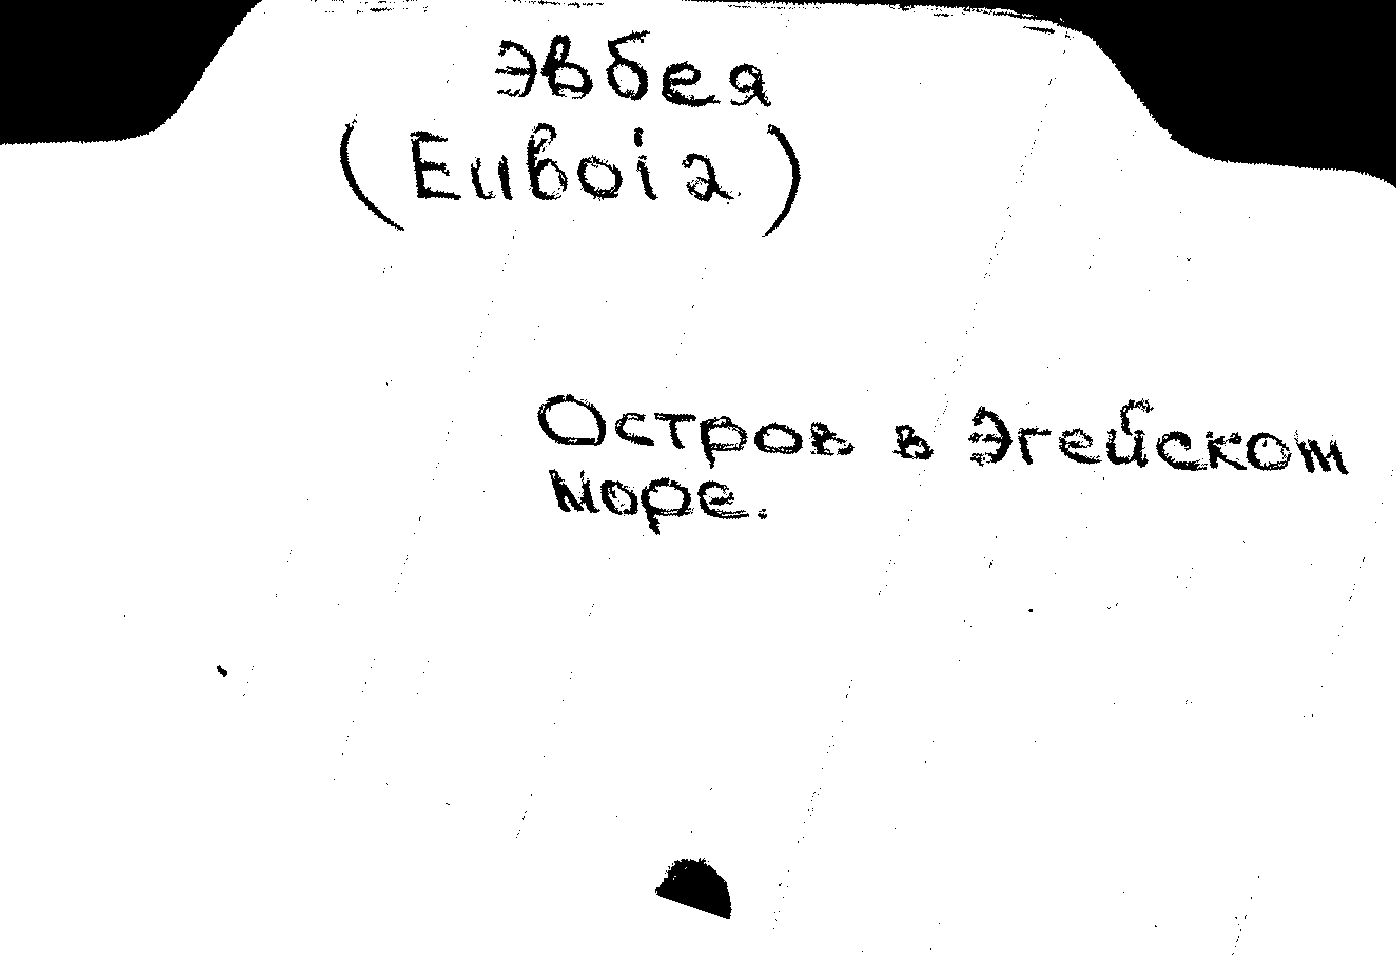 Эвбея
(Euboia)
Остров в Эгейском
море.